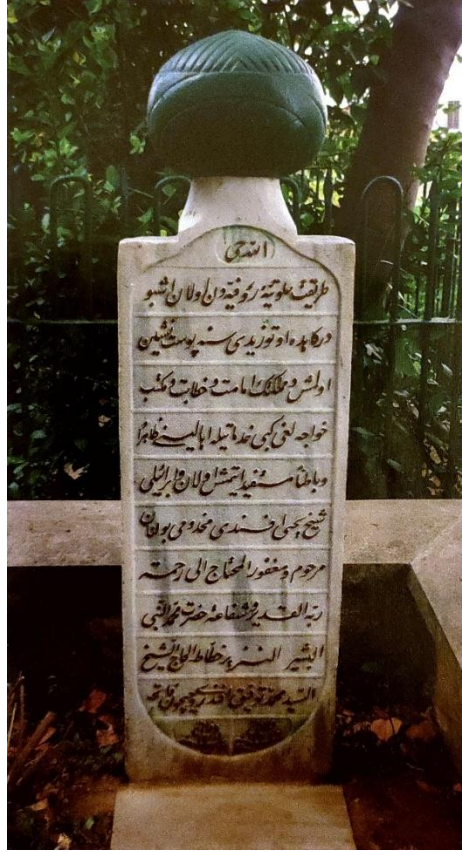 الله حی
طریقت خلوتیهٔ رؤفیه دن اولان اشبو
درکاهده اوتوز یدی سنه پوست نشین
اولمش و مملکتك امامت و خطابت و مکتب
خواجه لغی کبی خدماتیله اهالینی ظاهراً
وباطناً مستفید ایتمش اولان
شیخ یحیی افندی مخدومی بولنان
مرحوم و مغفور المحتاج الی رحمة
ربه القدیر و شفاعة حضرت محمد النبی
البشیر النذیر خطاط الحاج الشیخ
السید محمد توفیق افندی روحیچون فاتحه